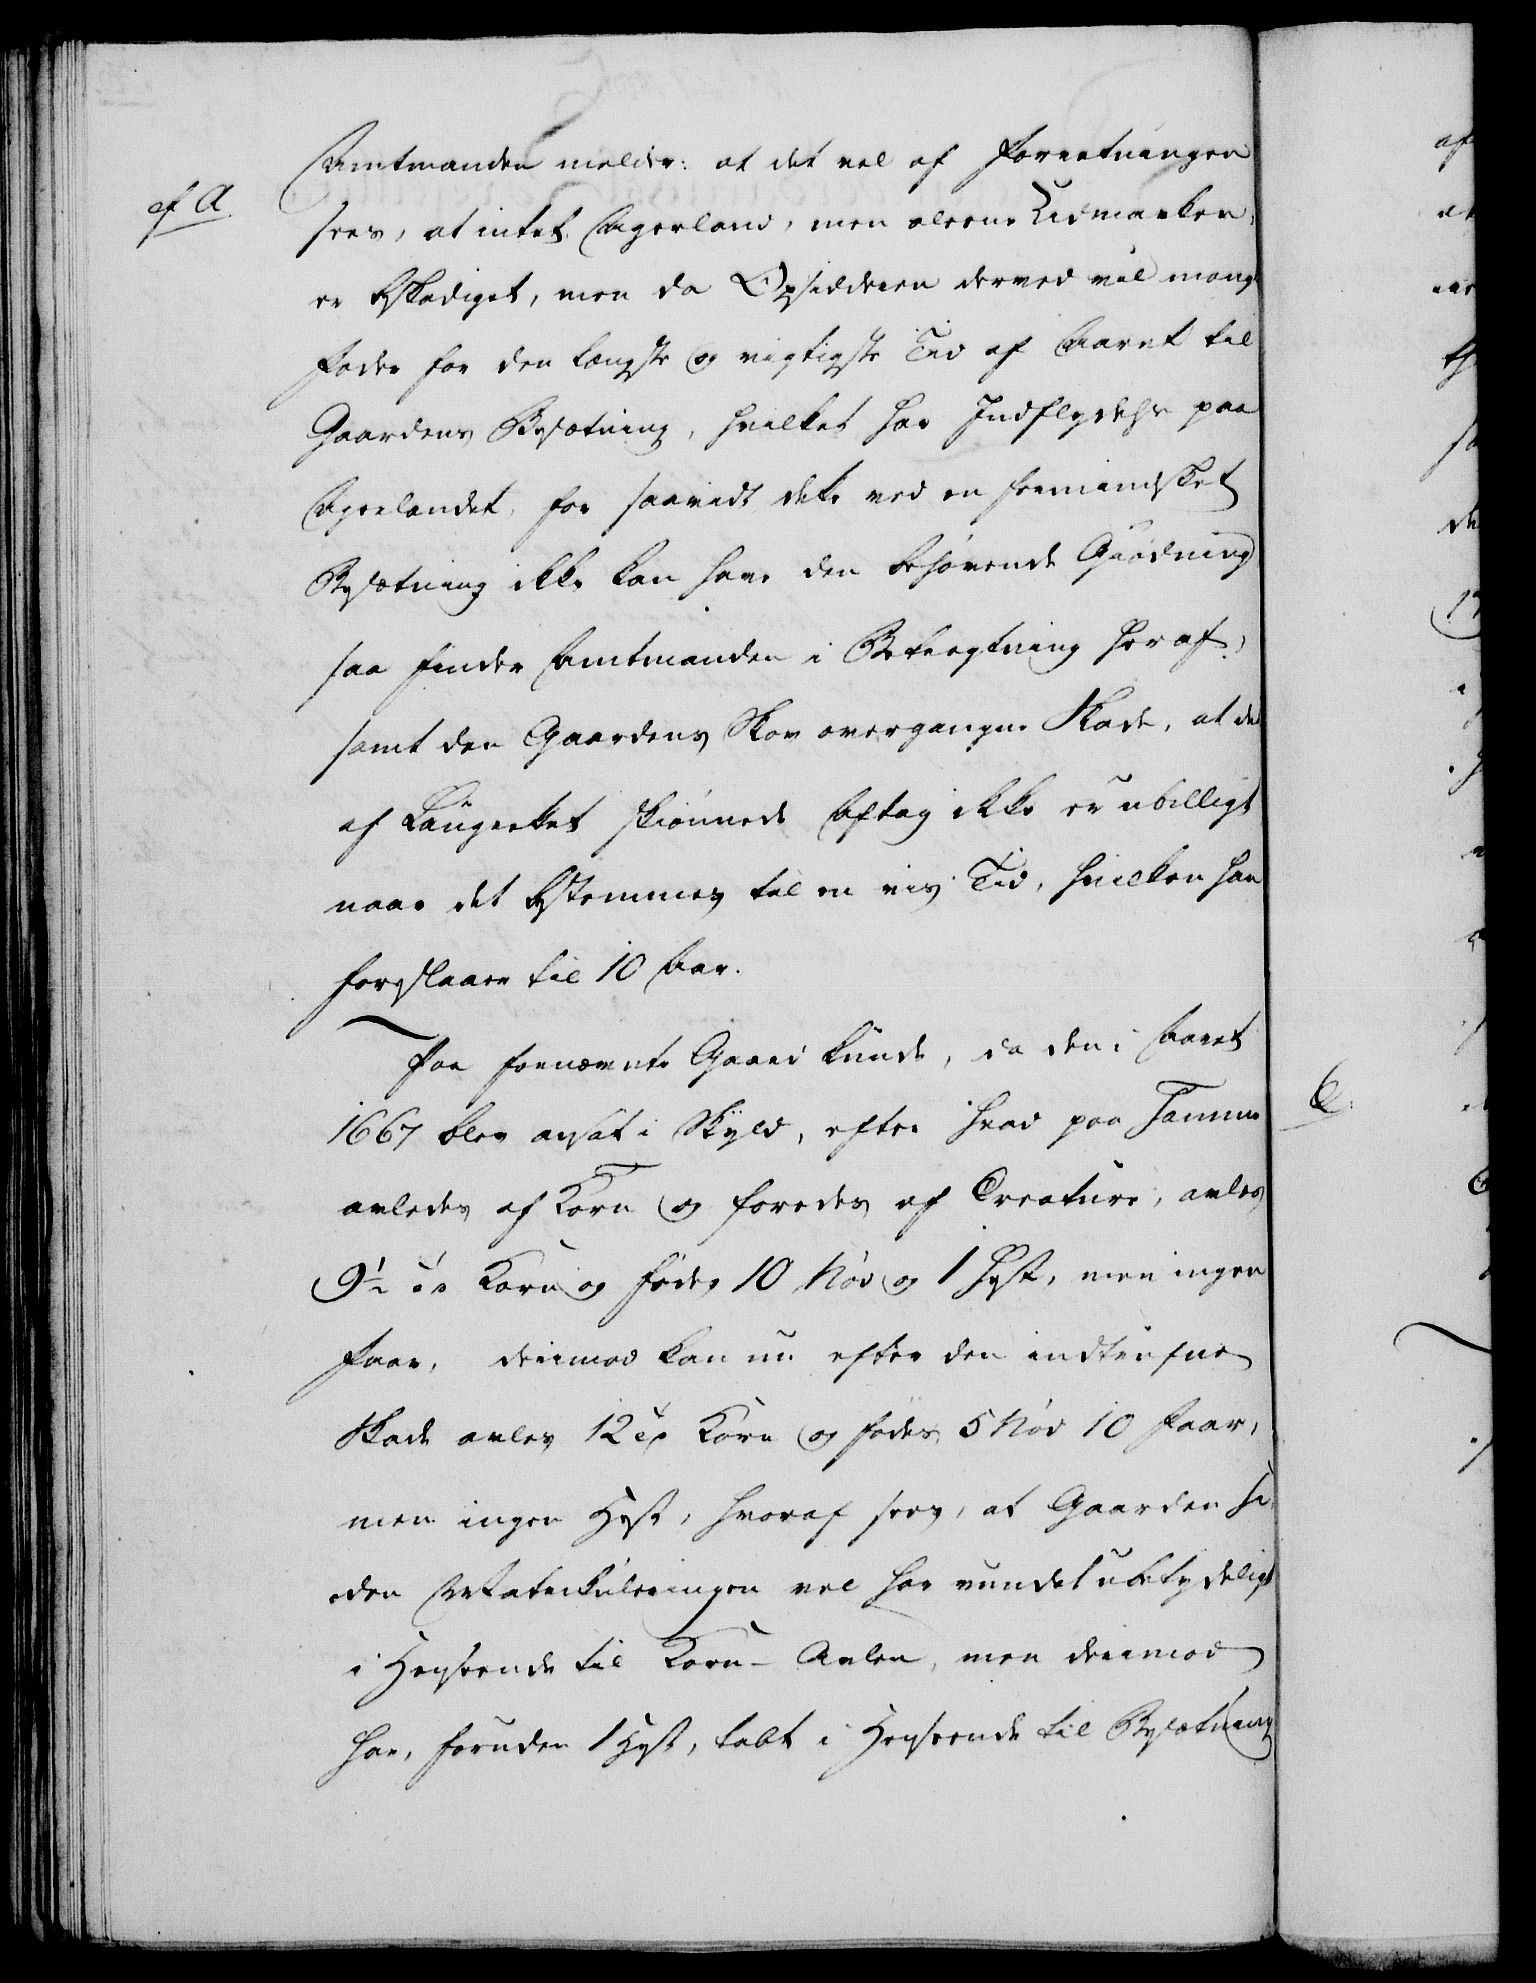 ef A
Amtmanden melder: at det vel af Forretningen
sees, at intet Agerland, men aleene Udmarken,
er beskadiget, men da Opsidderen derved vil mang
Foder for den længste og vigtigste Tid af Aaret til
Gaardens Besætning, hvilket har Indflydelse paa
Agerlandet, for saavidt dette ved en formindsket
Besætning ikke kan have den behøvende Giødning
saa finder Amtmanden i Betragtning heraf,
samt den Gaardens Skov overgangne Skade, at det
af Laugrettet skiønnede Aftag ikke er ubilligt
naar det bestemmes til en vis Tid, hvilken han
foreslaaer til 10 Aar.
Paa fornævnte Gaard kunde, da den i Aaret
1667 blev ansat i Skyld, efter hvad paa Samme
avledes af Korn og foredes af Creature, avles
9½ Korn og fødes 10 Nød og 1 Hest, men ingen
Faar, derimod kan nu efter den indtrufne
Skade avles 12 Korn og fødes 5 Nød 10 Faar,
men ingen Hest, hvoraf sees, at Gaarden si-
den Matriculeringen vel har vundet ubetydeligt
i Henseende til Korn-Avlen, men derimod
har, foruden 1 Hest, tabt i Henseende til Besætning